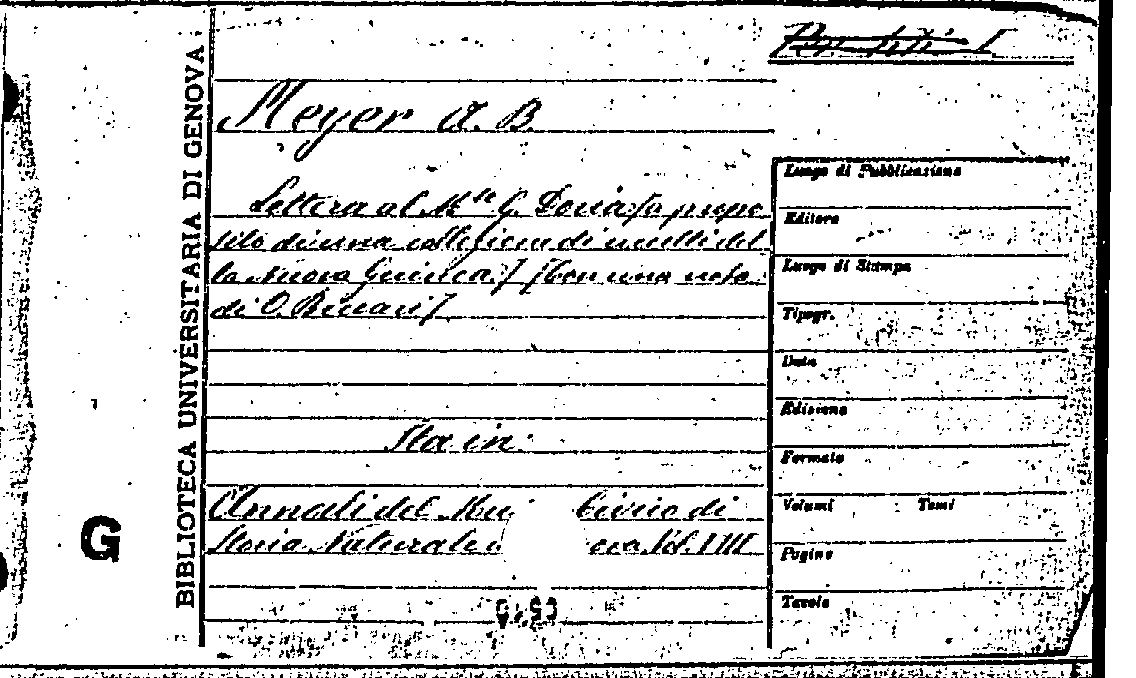 Meyer A. B.
Lettera al M.se G. Doria [a propo
sito di una collezione di uccelli del
la Nuova Guinea.] [Con una nota
di O. Beccari]
Sta in:
Annali del Civico di
Storia Naturale
BIBLIOTECA UNIVERSITARIA DI GENOVA
G
Luogo di Pubblicazione
Editore
Luogo di Stampa
Tipogr.
Data
Edizione
Formato
Volumi Tomi
Pagine
Tavole